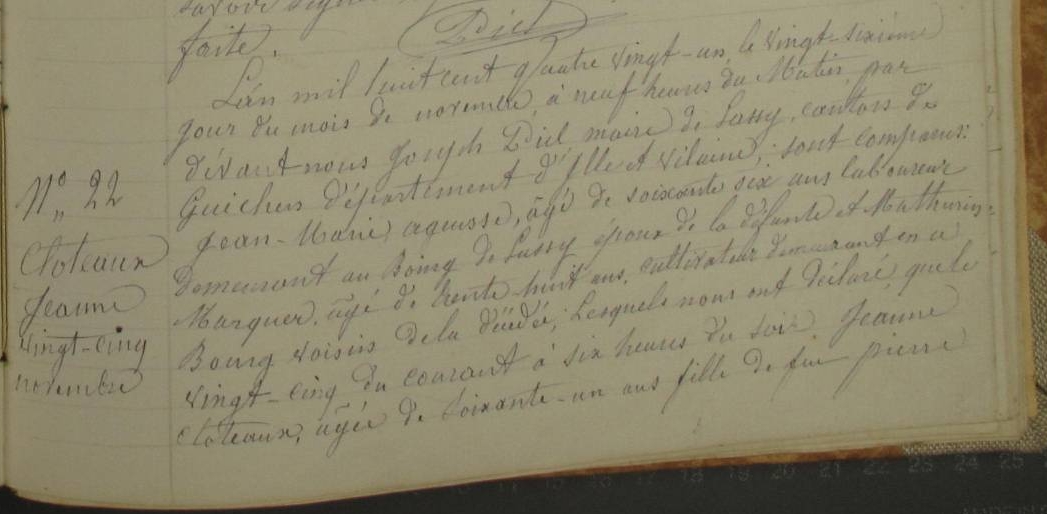 savoir signer
faite.
Diel
L'an mil huit cent quatre vingt-un, le vingt-sixième
jour du mois de novembre, à neuf heures du Matin, par
dévant nous Joseph Diel maire de Lassy, canton de
Guichen département d'Ille et Vilaine, sont comparus:
Jean-Marie ageusse, âgé de soixante six ans laboureur
Demeurant au Bourg de Lassy époux de la défunte et Mathurin
Marquer, âgé de trente-huit ans, cultivateur demeurant en ce
Bourg voisin de la décédée; Lesquels nous ont déclaré, que le
vingt-cinq du courant à six heures du soir Jeanne
Cloteaux, âgée de soixante-un ans fille de feu pierre
N° 22
Cloteaux
Jeanne
vingt-cinq
novembre
18 19 20 21 22 23 24 25